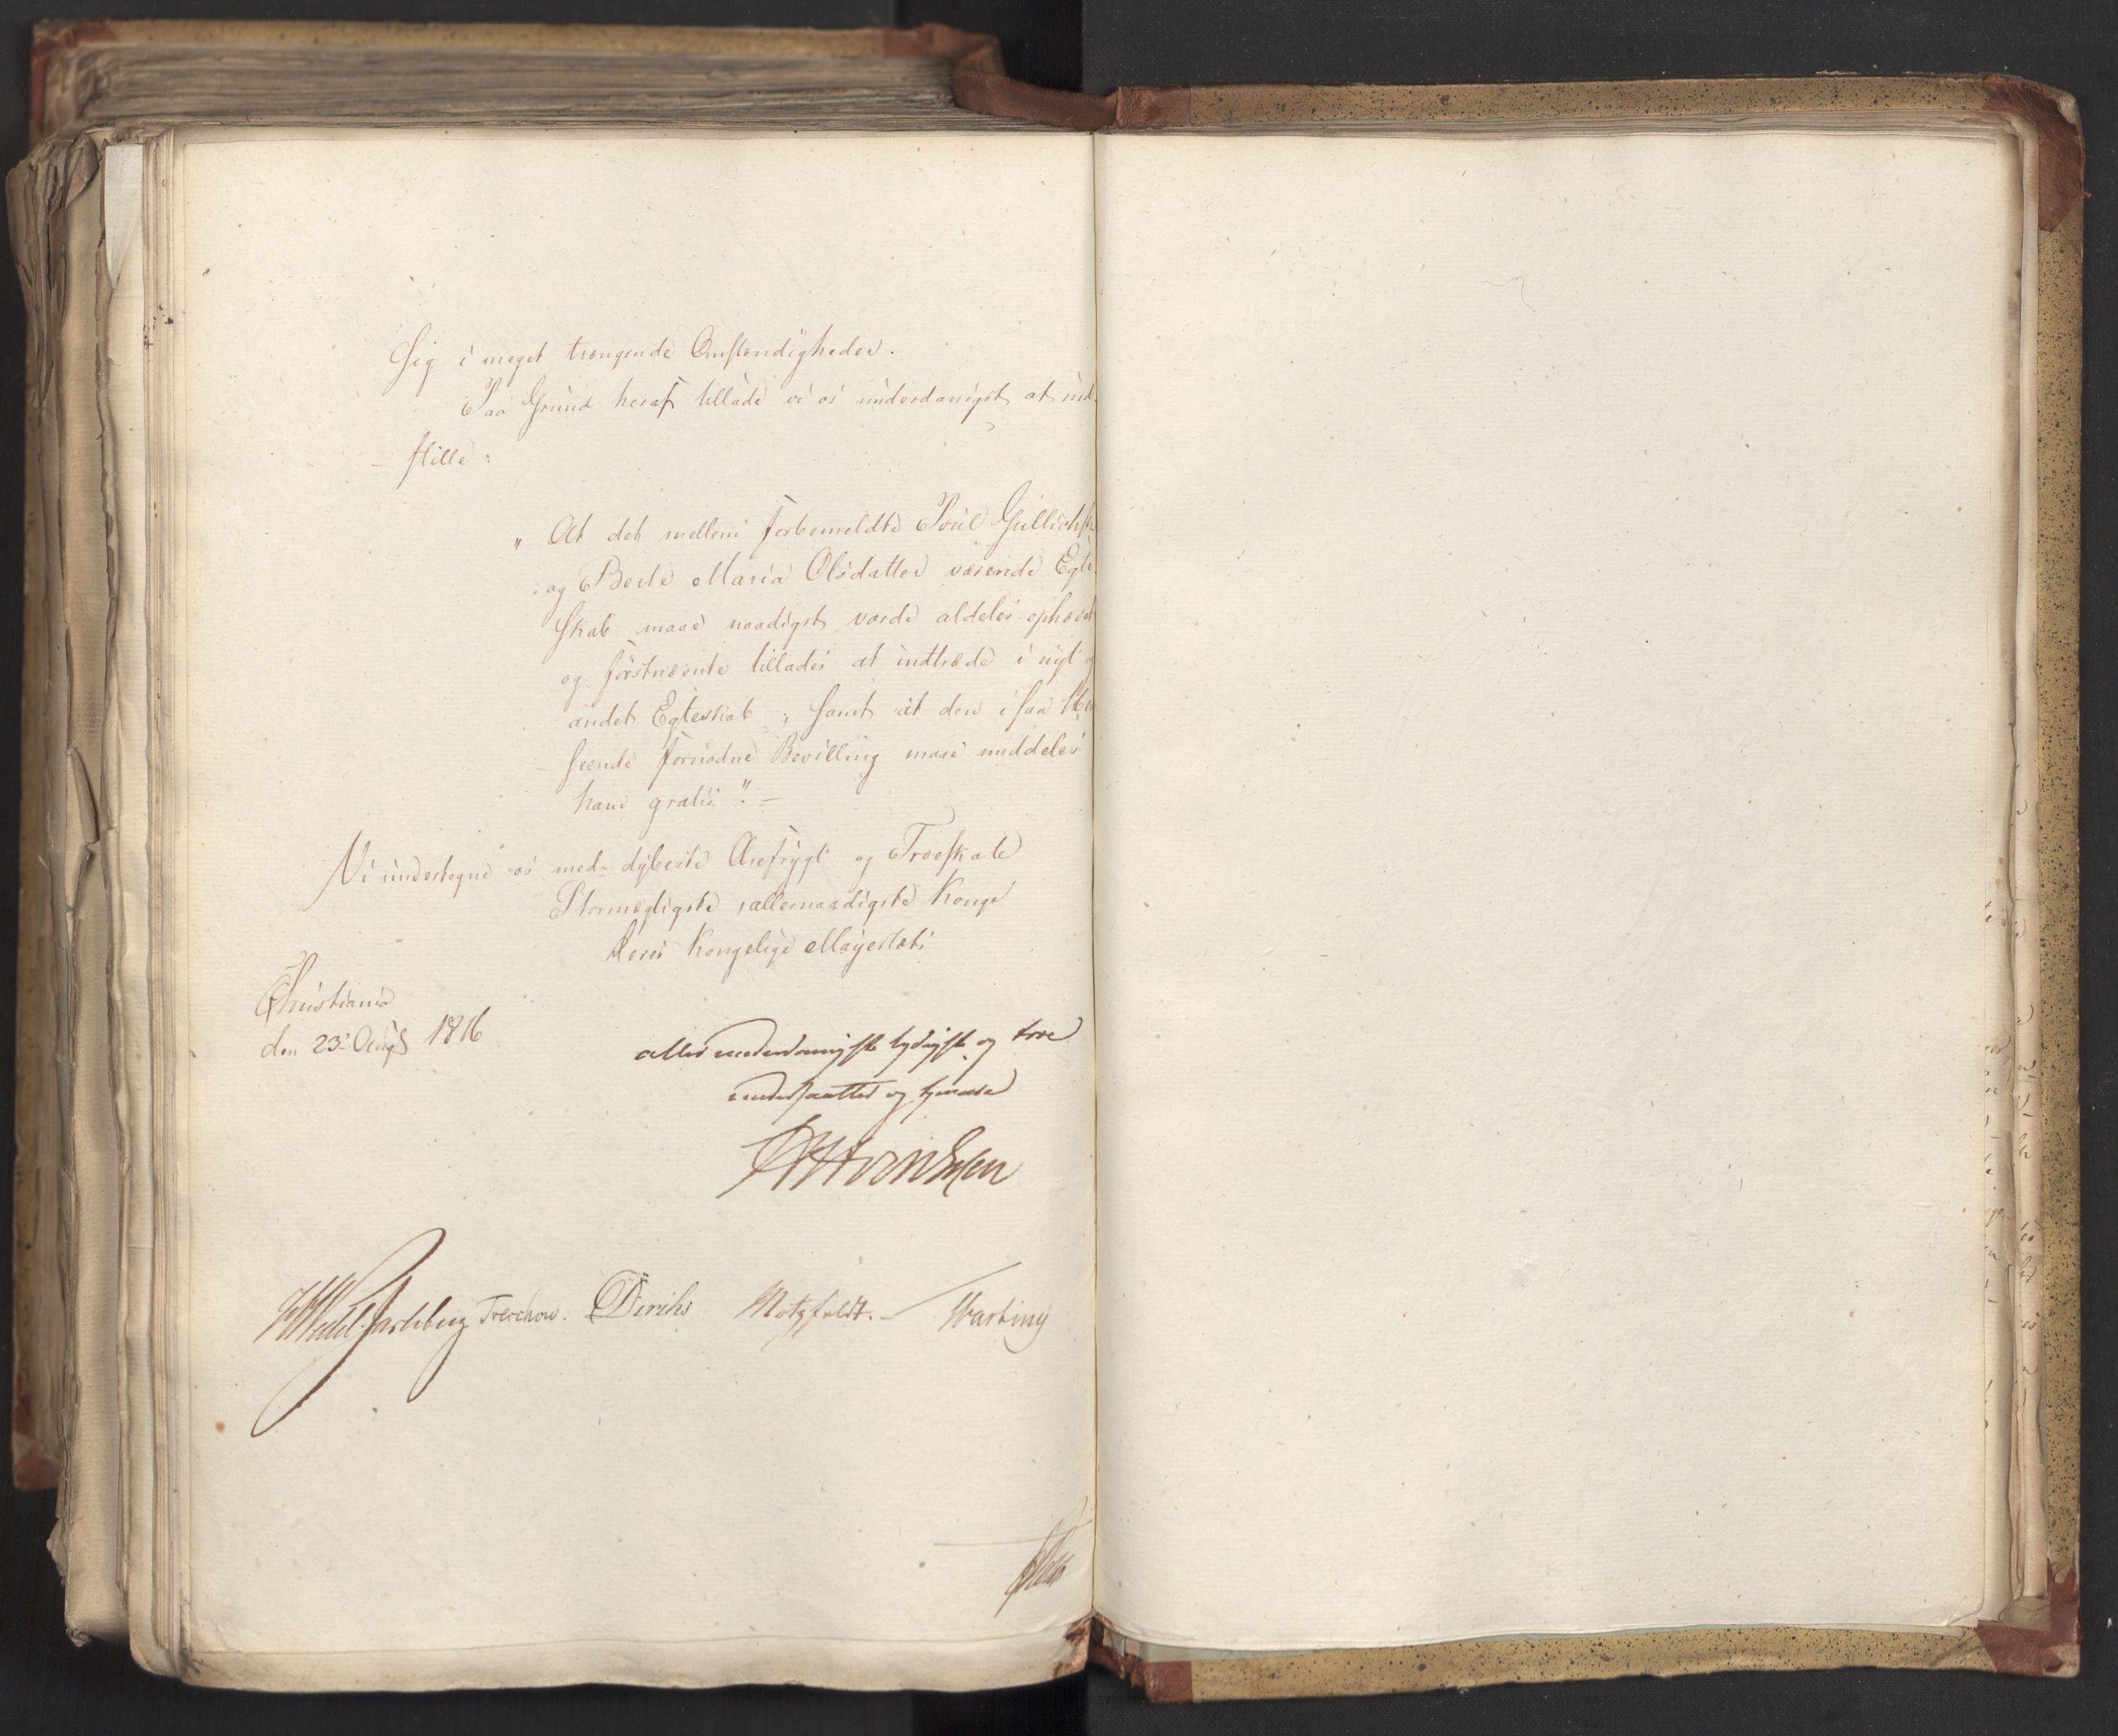 Sig i meget trængende Omstændigheder.
Paa Grund heraf tillade vi os underdanigst at ind-
stille:
" At det mellem forbemeldte Poul Gullichs
og Berte Maria Olsdatter værende Egte-
skab maae naadigst vorde aldeles ophævet
og førstnævnte tillades at indtræde i nyt
andet Egteskab ; samt at den i saa
seende fornødne Bevilling maae meddeles
ham gratis." -
Vi undertegne os med dybeste Ærefrygt og Troeskab
Stormægtigste, allernaadigste Konge
Deres Kongelige Mayestæts
Christiania
den 23de Augs 1816
allerunderdanigste lydigste og troe
undersaatter og tjenere
Wedel Jarlsberg Treschow. Diriks Motzfeldt. - Vasting